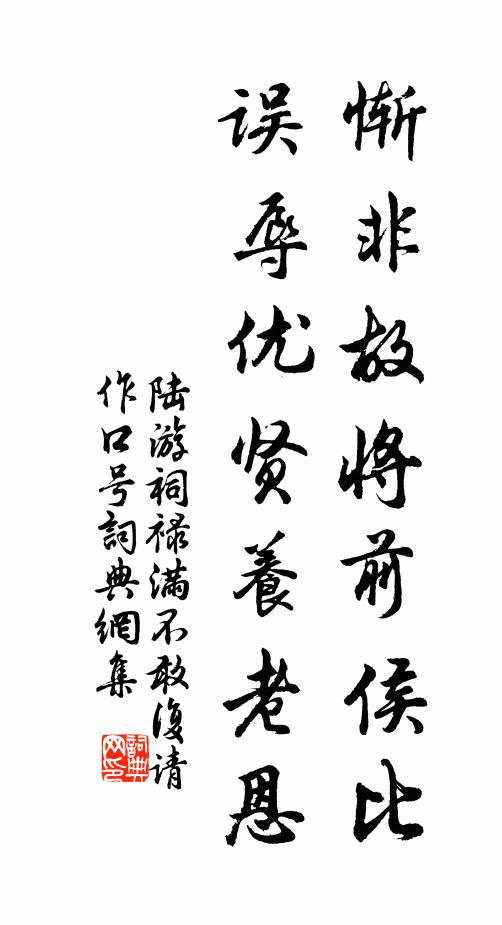 惭非故将前侯比
误辱优贤養老恩
陆游祠禄满不敢復请
作口号詞典網集
詞典
网印